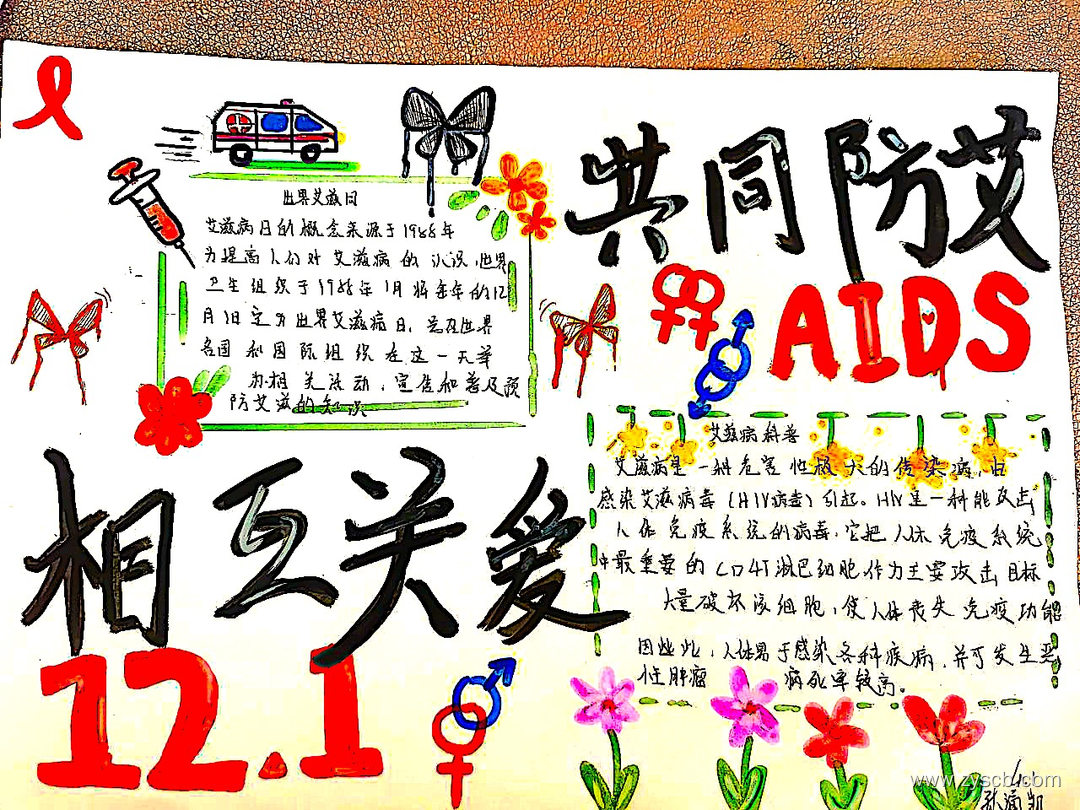 共同防艾
AIDS
世界艾滋日
艾滋病日的概念来源于1988年
为提高人们对艾滋病的认识,世界
卫生组织于1988年1月将每年的12
月1日定为世界艾滋病日,号召世界
各国和国际组织在这一天举
办相关活动,宣传和普及预
防艾滋的知识
相互关爱
12.1
艾滋病科普
艾滋病是一种危害性极大的传染病,由
感染艾滋病病毒(HIV病毒)引起。HIV是一种能攻击
人体免疫系统的病毒,它把人体免疫系统
中最重要的CD4T淋巴细胞作为主要攻击目标
大量破坏该细胞,使人体丧失免疫功能
因此,人体易于感染各种疾病,并可发生恶
性肿瘤 病死率较高。
www.zyscb.com